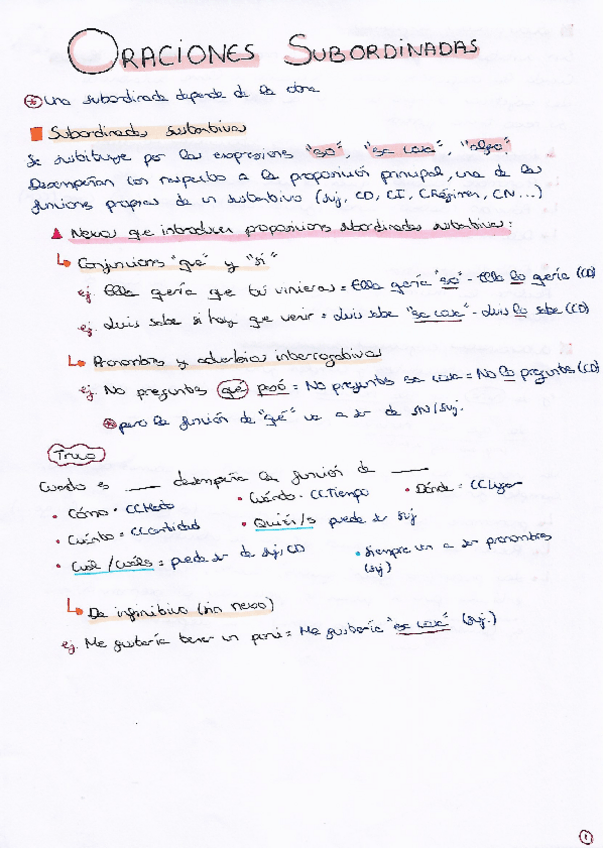 ORACIONES SUBORDINADAS
Una subordinada depende de la otra
Subordinadas sustantivas
Se sustituye por las expresiones "eso", "esa cosa", "algo"
Desempeñan con respecto a la proposición principal, una de las
funciones propias de un sustantivo (suj, CD, CI, CRégimen, CN...)
Nexos que introducen proposiciones subordinadas sustantivas:
Conjunciones "que" y "si"
ej. Ella quería que tú vinieras = Ella quería "eso" - Ella lo quería (CD)
ej. Luis sabe si hay que venir = Luis sabe "esa cosa" - Luis lo sabe (CD)
Pronombres y adverbios interrogativos
ej. No preguntes qué pasó = No preguntes esa cosa = No lo preguntes (CD)
pero la función de "qué" va a ser de SN/Suj.
Truco
Cuando es ____ desempeña la función de ____
• Cómo = CCModo • Cuándo = CCTiempo • Dónde = CCLugar
• Cuánto = CCCantidad • Quién/s puede ser suj
• Cuál / Cuáles = puede ser de suj, CD • Siempre van a ser pronombres
(suj)
De infinitivo (sin nexo)
ej. Me gustaría tener un poni = Me gustaría "esa cosa" (suj.)
1